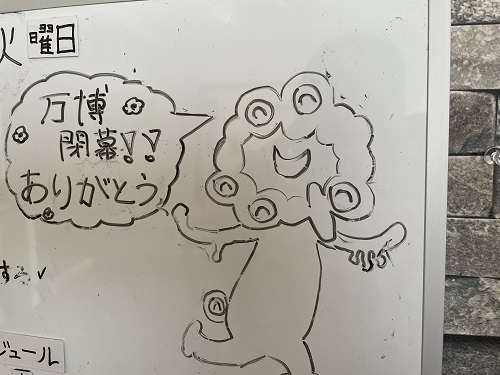 火曜日
万博
閉幕!!
ありがとう
ジュール